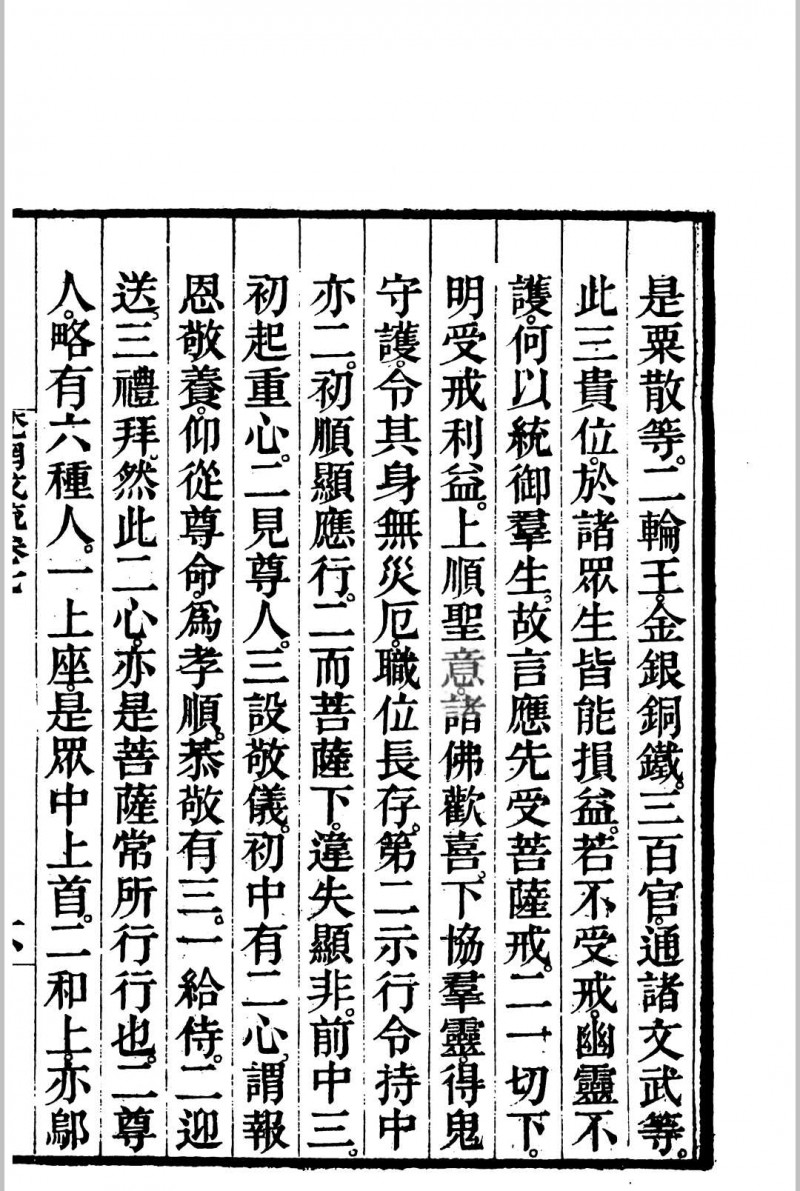 是粟散等。二輪王。金銀銅鐵。三百官。通諸文武等。
此三貴位。於諸眾生皆能損益。若不受戒。幽靈不
護。何以統御羣生。故言應先受菩薩戒。二一切下。
明受戒利益。上順聖意。諸佛歡喜。下協羣靈。得鬼
守護。令其身無災厄。職位長存。第二示行令持中
亦二。初順顯應行。二而菩薩下。違失顯非。前中三。
初起重心。二見尊人。三設敬儀。初中有二心。謂報
恩敬養。仰從尊命。為孝順。恭敬有三。一給侍。二迎
送。三禮拜。然此二心。亦是菩薩常所行行也。二尊
人。略有六種人。一上座。是眾中上首。二和上。亦鄔